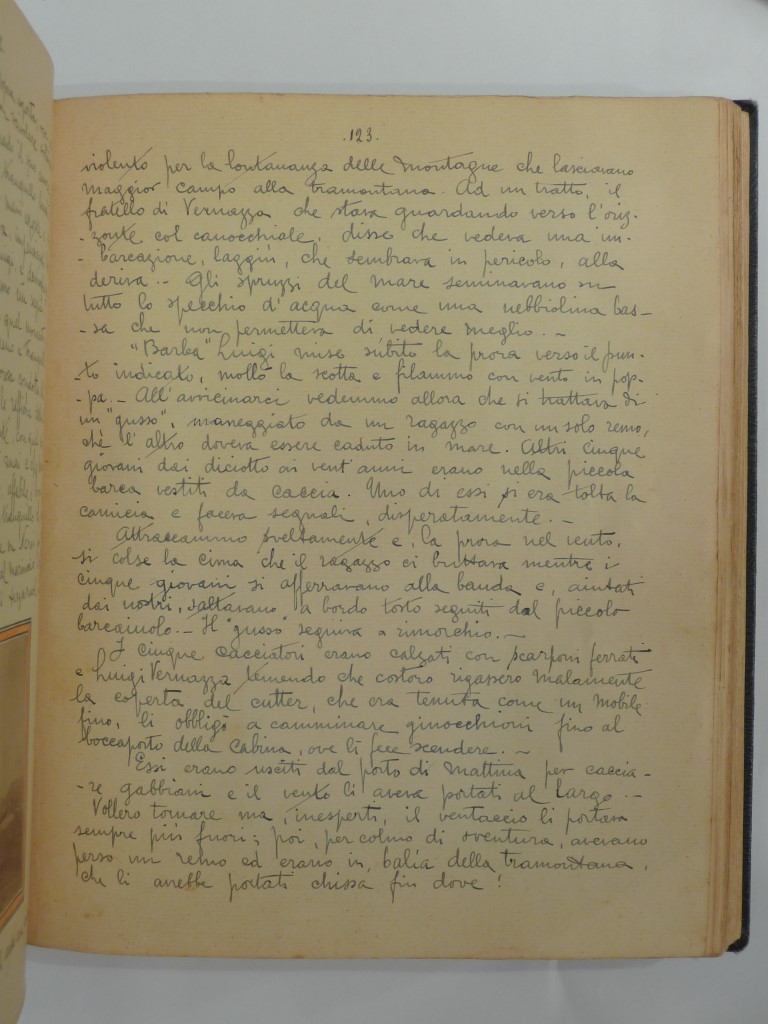 .123.
violento per la lontananza delle montagne che lasciavano
maggior campo alla tramontana. Ad un tratto, il
fratello di Vernazza che stava guardando verso l'oriz-
-zonte col canocchiale, disse che vedeva una im-
-barcazione, laggiù, che sembrava in pericolo, alla
deriva.- Gli spruzzi del mare seminavano su
tutto lo specchio d'acqua come una nebbiolina bas-
-sa che non permetteva di vedere meglio.-
"Barba" Luigi mise subito la prora verso il pun-
-to indicato, mollò la scotta e filammo con vento in pop-
-pa.- All'avvicinarci vedemmo allora che si trattava di
un "gusso", maneggiato da un ragazzo con un solo remo,
chè l'altro doveva essere caduto in mare. Altri cinque
giovani dai diciotto ai vent'anni erano nella piccola
barca vestiti da caccia. Uno di essi si era tolta la
camicia e faceva segnali, disperatamente.-
Attraccammo sveltamente e, la prora nel vento,
si colse la cima che il ragazzo ci buttava mentre i
cinque giovani si afferravano alla banda e, aiutati
dai nostri, saltavano a bordo tosto seguiti dal piccolo
barcaiuolo.- Il "gusso" seguiva a rimorchio.-
I cinque cacciatori erano calzati con scarponi ferrati
e Luigi Vernazza temendo che costoro rigassero malamente
la coperta del cutter, che era tenuta come un mobile
fino, li obbligò a camminare ginocchioni fino al
boccaporto della cabina, ove li fece scendere.-
Essi erano usciti dal porto di mattina per caccia-
-re gabbiani e il vento li aveva portati al largo.-
Vollero tornare ma, inesperti, il ventaccio li portava
sempre più fuori; poi, per colmo di sventura, avevano
perso un remo ed erano in balìa della tramontana,
che li avrebbe portati chissà fin dove!